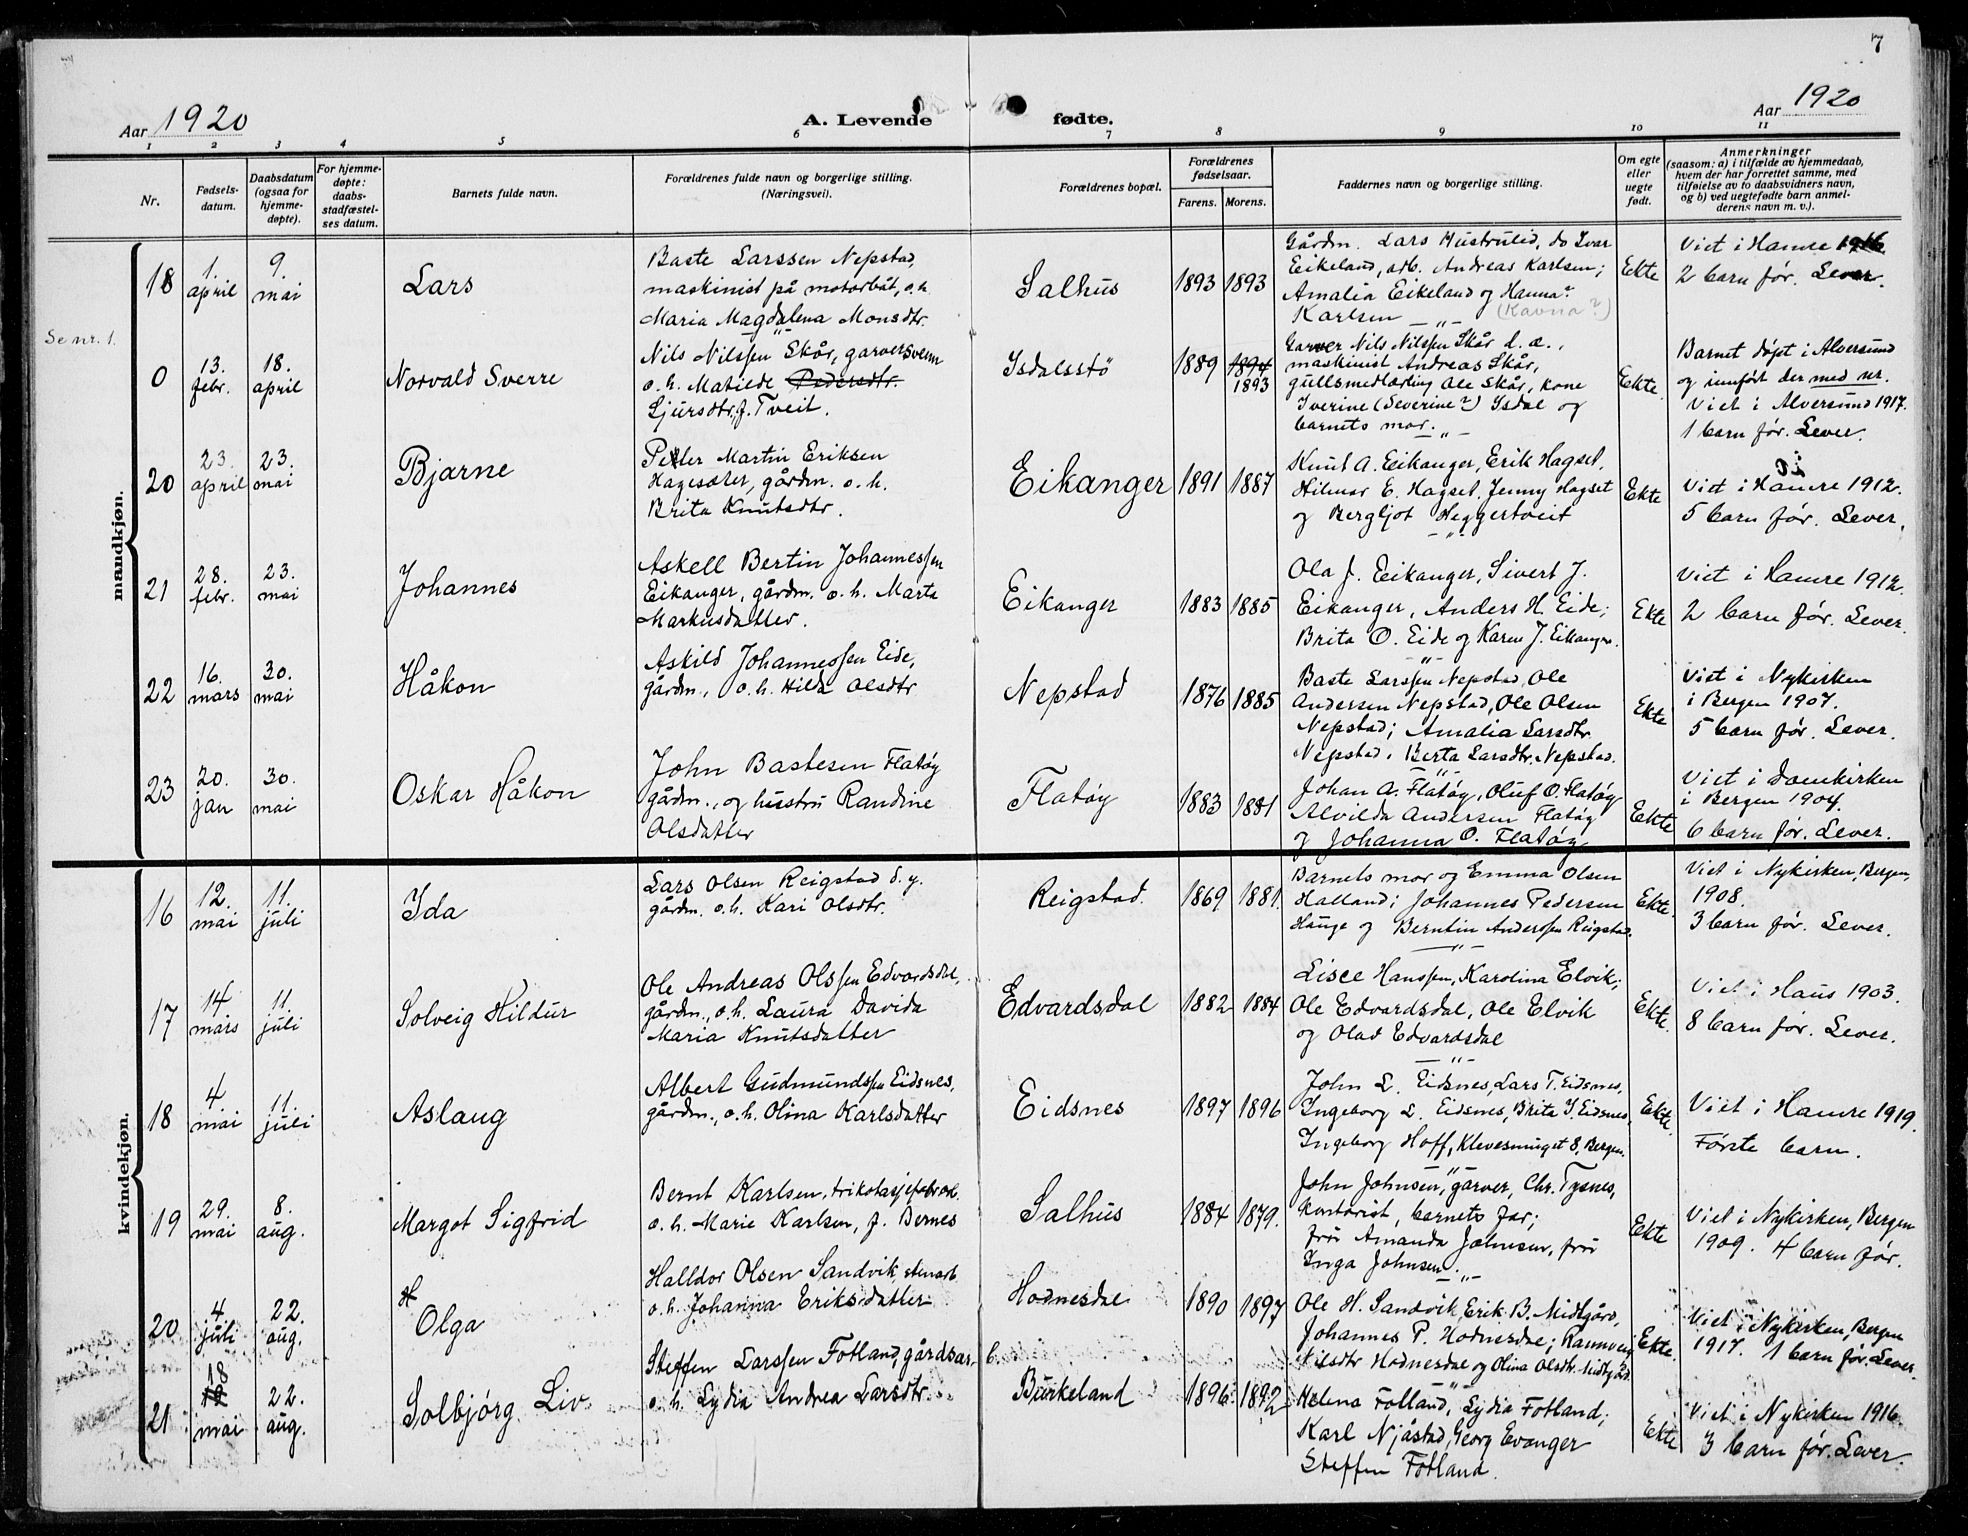 7
Aar 1920
A. Levende fødte.
Aar 1920
1 2 3 4 5 6 7 8 9 10 11
Nr.
Fødsels-
datum.
Daabsdatum
(ogsaa for
hjemme-
døpte).
For hjemme-
døpte:
daabs-
stadfæstel-
ses datum.
Barnets fulde navn.
Forældrenes fulde navn og borgerlige stilling.
(Næringsvei).
Forældrenes bopæl.
Forældrenes
fødselsaar.
Farens. Morens.
Faddernes navn og borgerlige stilling.
Om egte
eller
uegte
født.
Anmerkninger
(saasom: a) i tilfælde av hjemmedaab,
hvem der har forrettet samme, med
tilføielse av to daabsvidners navn,
og b) ved uegtefødte barn anmel-
derens navn m. v.).
mandkjøn.
18
1.
april
9.
mai
Lars
Baste Larssen Nepstad,
maskinist på motorbåt, o.h.
Maria Magdalena Monsdtr.
Salhus
1893 1893
Gårdm. Lars Mustrulid, do Ivar
Eikeland, arb. Andreas Karlsen;
Amalia Eikeland og Hanna?
Karlsen (Ravna?)
Ekte
Viet i Hamre 1916
2 barn før. Lever.
Se nr. 1.
0
13.
febr.
18.
april
Norvald Sverre
Nils Nilssen Skår, garversvenn
o.h. Matilde Pedersdtr.
Sjursdtr. f. Tveit.
Isdalsstø
1889 1894
1893
Garver Nils Nilssen Skår d. æ.,
maskinist Andreas Skår,
gullsmedlærling Ole Skår, kone
Iverine (Severine?) Isdal og
barnets mor.
Ekte
Barnet døpt i Alversund
og innført der med nr.
Viet i Alversund 1917.
1 barn før. Lever.
20
23.
april
23.
mai
Bjarne
Petter Martin Eriksen
Hagesæter, gårdm. o.h.
Brita Knutsdtr.
Eikanger
1891 1887
Knut A. Eikanger, Erik Hagset,
Hilmar E. Hagset, Jenny Hagset
og Bergljot Heggertveit
Ekte
Viet i Hamre 1912.
5 barn før. Lever.
21
28.
febr.
23.
mai
Johannes
Askell Bertin Johannessen
Eikanger, gårdm. o.h. Marta
Markusdatter.
Eikanger
1883 1885
Ola J. Eikanger, Sivert J.
Eikanger, Anders H. Eide;
Brita O. Eide og Karen J. Eikanger.
Ekte
Viet i Hamre 1912.
2 barn før. Lever.
22
16.
mars
30.
mai
Håkon
Askild Johannessen Eide,
gårdm., o.h. Hilda Olsdtr
Nepstad
1876 1885
Baste Larssen Nepstad, Ole
Andersen Nepstad, Ole Olsen
Nepstad; Amalia Larsdtr.
Nepstad, Berta Larsdtr. Nepstad.
Ekte
Viet i Nykirken
i Bergen 1907.
5 barn før. Lever.
23
20.
jan
30.
mai
Oskar Håkon
John Bastesen Flatøy
gårdm., og hustru Randine
Olsdatter
Flatøy
1883 1881
Johan A. Flatøy, Oluf O. Flatøy
Alvilda Andersen Flatøy
og Johanna O. Flatøy
Ekte
Viet i Domkirken
i Bergen 1904.
6 barn før. Lever.
kvindekjøn.
16
12.
mai
11.
juli
Ida
Lars Olsen Reigstad d. y.
gårdm. o.h. Kari Olsdtr.
Reigstad.
1869 1881.
Barnets mor og Emma Olsen
Halland; Johannes Pedersen
Hauge og Berntin Anderssen Reigstad.
Ekte.
Viet i Nykirken, Bergen,
1908.
3 barn før. Lever.
17
14
mars
11.
juli
Solveig Hildur
Ole Andreas Olssen Edvardsdal,
gårdm., o.h. Laura Davida
Maria Knutsdatter
Edvardsdal
1882 1884
Lisce Hanssen, Karolina Elvik;
Ole Edvardsdal, Ole Elvik
og Olad Edvardsdal
Ekte.
Viet i Haus 1903.
8 barn før. Lever.
18
4
mai
11.
juli
Aslaug
Albert Gudmundssen Eidsnes,
gårdm., o.h. Olina Karlsdatter
Eidsnes
1897 1896
John L. Eidsnes, Lars T. Eidsnes,
Ingeborg L. Eidsnes, Brita I. Eidsnes,
Ingeborg Hoff, Klevesmuget 8, Bergen.
Ekte.
Viet i Hamre 1919.
Første barn.
19
29.
mai
8.
aug.
Margot Sigfrid
Bernt Karlsen, trikotasjefabrarb.
o.h. Marie Karlsen, f. Bernes
Salhus
1884 1879.
John Johnsen, garver, Chr. Tysnes,
kontorist, barnets far;
fru Amanda Johnsen, fru
Inga Johnsen.
Ekte
Viet i Nykirken, Bergen
1909. 4 barn før.
20
4
juli
22.
aug.
H
Olga
Halldor Olsen Sandvik, stenarb.
o.h. Johanna Eriksdatter
Hodnesdal
1890 1897
Ole H. Sandvik, Erik B. Midtgård,
Johannes P. Hodnesdal; Rannveig
Nilsdtr Hodnesdal og Olina Olsdtr. Midtgård.
Ekte.
Viet i Nykirken, Bergen
1917. 1 barn før. Lever.
21
18
mai
22.
aug.
Solbjørg Liv
Steffen Larssen Fotland, gårdsar-b.
o.h. Lydia Andrea Larsdtr.
Burkeland
1896. 1892
Helena Fotland, Lydia Fotland;
Karl Njåstad, Georg Evanger
Steffen Fotland.
Ekte
Viet i Nykirken 1916.
3 barn før. Lever.